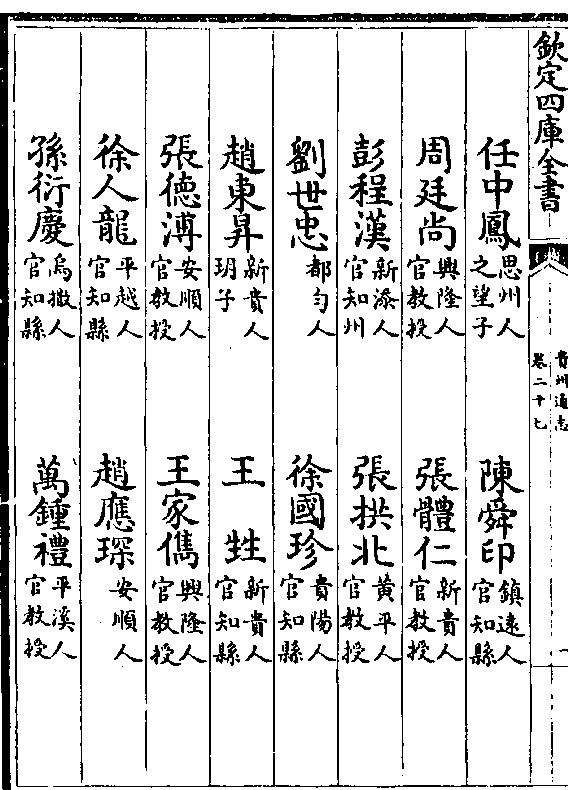 欽定四庫全書
貴州通志
卷二十七
任中鳳 思州人之望子 陳舜印 鎮遠人官知縣
周廷尚 興隆人官教授 張體仁 新貴人官教授
彭程漢 新添人官知州 張拱北 黄平人官教授
劉世忠 都勻人 徐國珍 貴陽人官知縣
趙東昇 新貴人玥子 王甡 新貴人官知縣
張德溥 安順人官教授 王家儁 興隆人官教授
徐人龍 平越人官知縣 趙應琛 安順人
孫衍慶 烏撒人官知縣 萬鍾禮 平溪人官教授